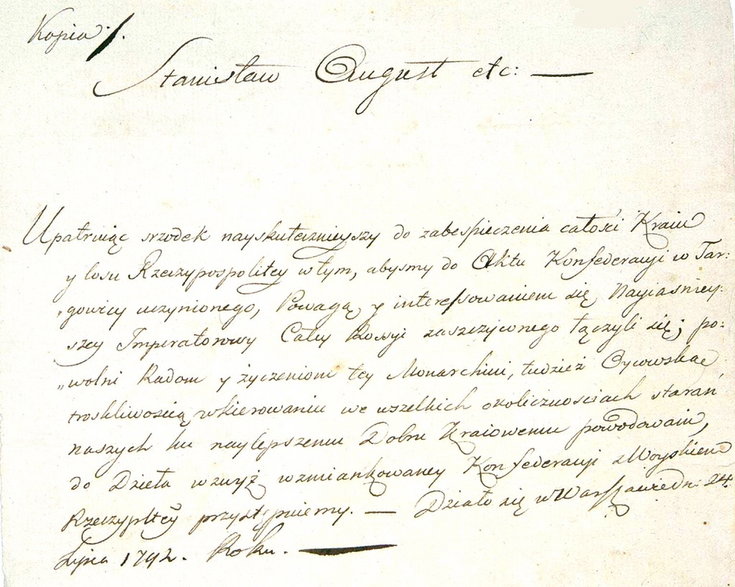 Kopia ·/.
Stanisław August etc: —
Upatruiąc srzodek nayskutecznieyszy do zabespieczenia całości Kraiu
y losu Rzeczypospolitey w tym, abysmy do Aktu Konfederacyi w Tar:
„gowicy uczynionego, Powagą y interessowaniem się Nayiasniey:
szey Imperatorowy Całey Rossyi zaszczyconego łączyli się; po„
„wolni Radom y życzeniom tey Monarchini, tudzież Oycowską
troskliwością w kierowaniu we wszelkich okolicznościach starań
naszych ku naylepszemu Dobru Kraiowemu powodowani,
do Dzieła wzwyż wzmiankowaney Konfederacyi z Woyskiem
Rzeczypltey przystępuiemy. — Działo się w Warszawie dn: 24.
Lipca 1792. Roku. —